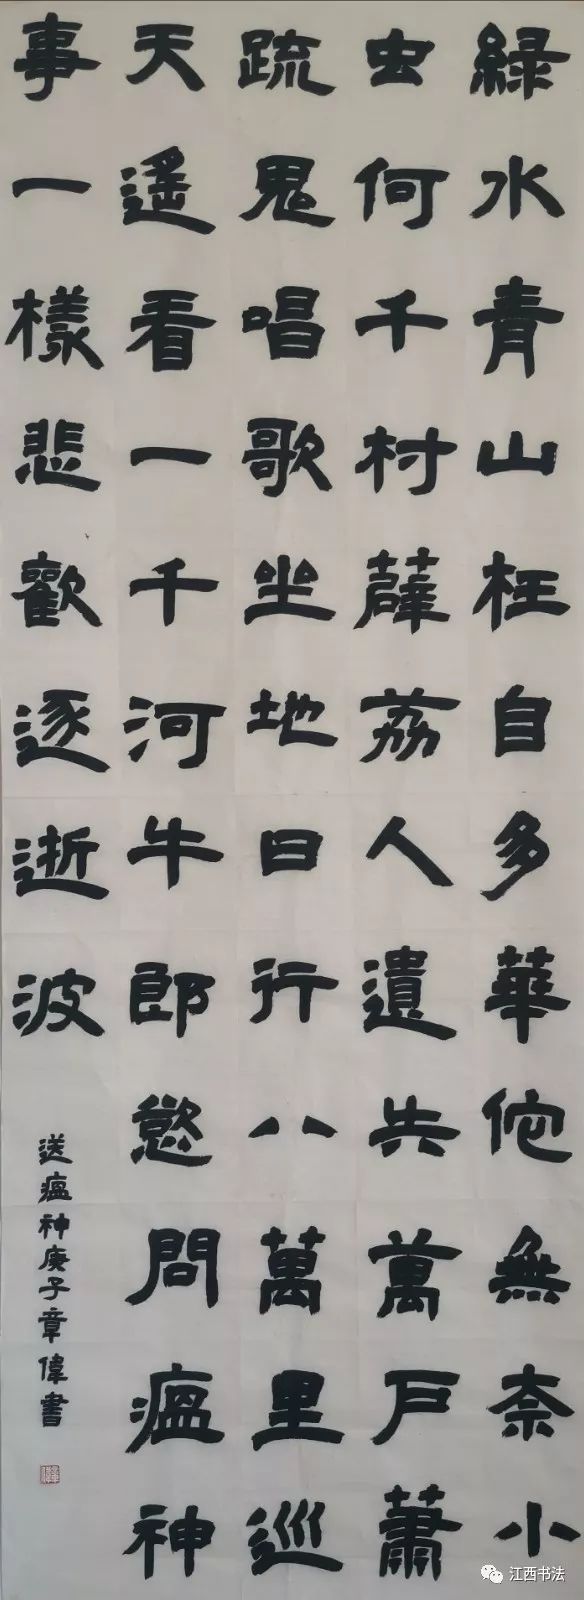 綠水青山枉自多華佗無奈小
虫何千村薜荔人遺矢萬戶蕭
疏鬼唱歌坐地日行八萬里巡
天遙看一千河牛郎慾問瘟神
事一樣悲歡逐逝波
送瘟神庚子章偉書
江西书法